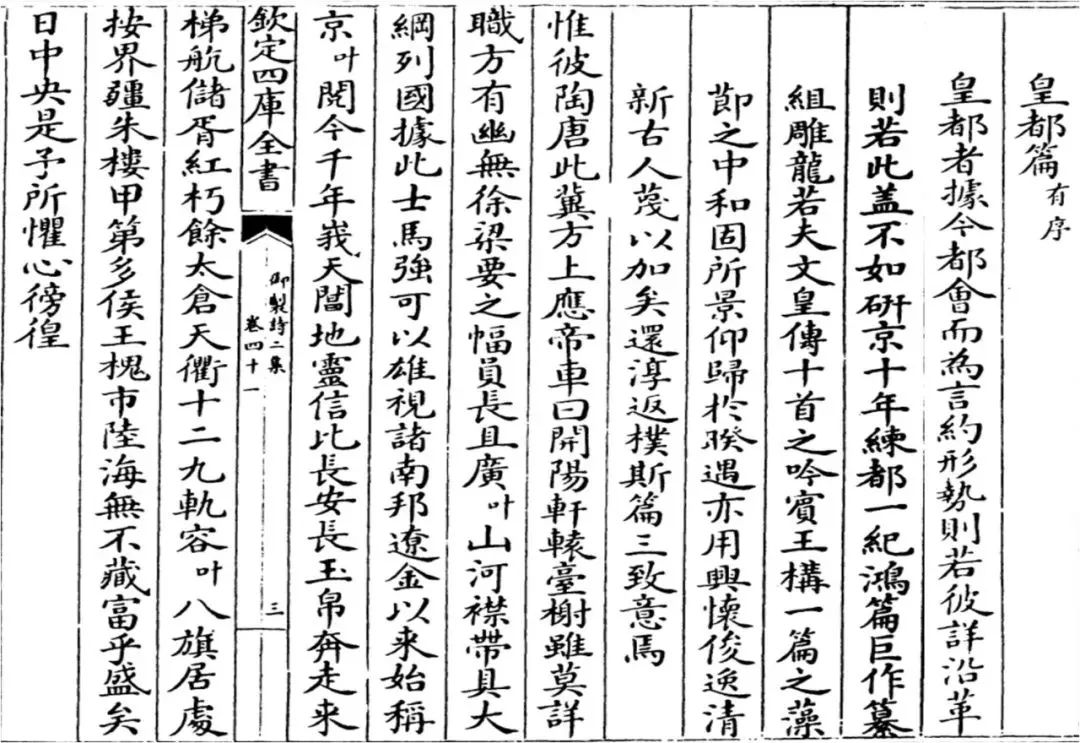 皇都篇有序
皇都者據今都會而為言約形勢則若彼詳沿革
則若此盖不如研京十年練都一紀鴻篇巨作纂
組雕龍若夫文皇傳十首之吟賓王構一篇之藻
節之中和固所景仰歸於暌遇亦用興懷俊逸清
新古人蔑以加矣還淳返樸斯篇三致意焉
惟彼陶唐此冀方上應帝車曰開陽軒轅臺榭雖莫詳
職方有幽無徐梁要之幅員長且廣叶山河襟帶具大
綱列國據此士馬強可以雄視諸南邦遼金以来始稱
京叶閱今千年峩天閶地靈信比長安長玉帛奔走来
欽定四庫全書
御製詩二集
卷四十一
三
梯航儲胥紅朽餘太倉天衢十二九軌容叶八旗居處
按界疆朱樓甲第多侯王槐市陸海無不藏富乎盛矣
日中央是予所懼心徬徨